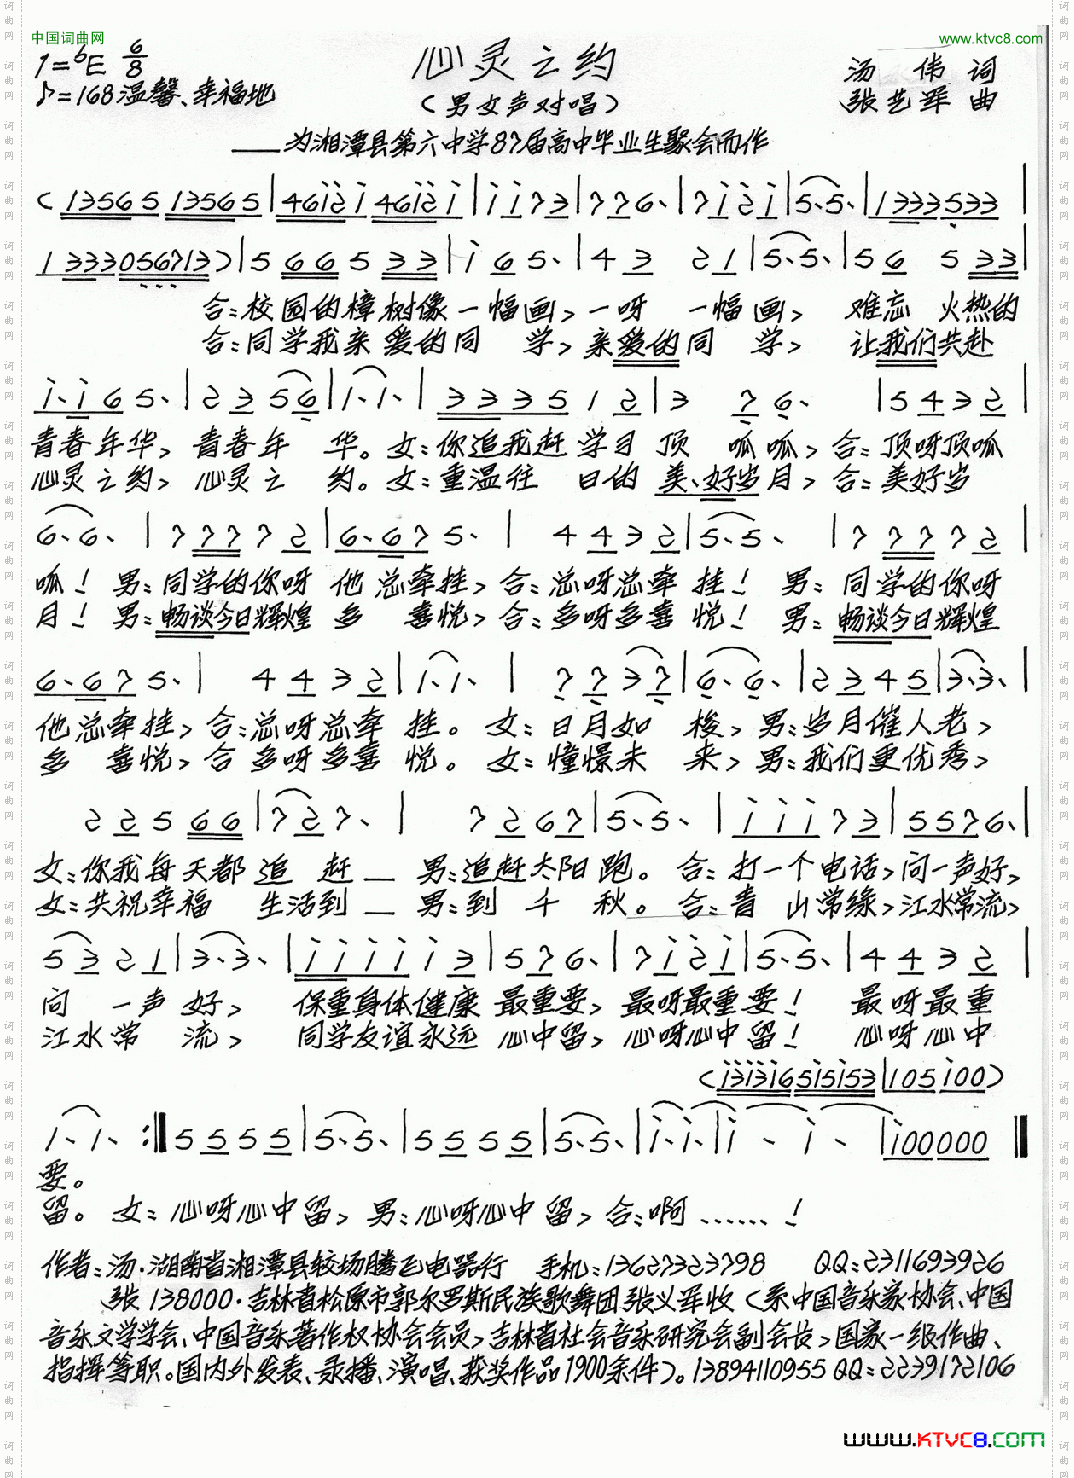 中国词曲网
www.ktvc8.com
1=♭E 6/8
心灵之约
汤 伟 词
♪=168 温馨、幸福地
(男女声对唱)
张艺军 曲
——为湘潭县第六中学87届高中毕业生聚会而作
(13565 13565|46i2i 46i2i|ii73|776·|7i2i|5·5·|1333533|
1333056713)|566533|i65·|43 21|5·5·|56 533|
合:校园的樟树像一幅画,一呀 一幅画, 难忘 火热的
合:同学我亲爱的同 学,亲爱的同 学, 让我们共赴
i·i65·|2356|i·i·|333512|3 76·|5432|
青春年华,青春年 华。女:你追我赶 学习 顶 呱呱,合:顶呀顶呱
心灵之约,心灵之 约。女:重温往 日的 美好岁月,合:美好岁
6·6·|77772|6·675·| 4432|5·5·|77772|
呱! 男:同学的你呀 他总牵挂,合:总呀总牵 挂! 男:同学的你呀
月! 男:畅谈今日辉煌 多 喜悦,合:多呀多喜 悦! 男:畅谈今日辉煌
6·675·| 4432|i·i·| 7737|6·6·|2345|3·3·|
他总牵挂,合:总呀总牵 挂。女:日月如 梭,男:岁月催人老,
多 喜悦,合 多呀多喜 悦。女:憧憬未 来,男:我们更优秀,
22566|727·| 7267|5·5·|iii73|5576·|
女:你我每天都 追 赶— 男:追赶太阳 跑。合:打一个电话,问一声好,
女:共祝幸福 生活到— 男:到 千 秋。合:青 山常缘,江水常流,
5321|3·3·|iiiiii3|576·|7i2i|5·5·|4432|
问 一声 好, 保重身体健康 最重要,最呀最重 要! 最呀最重
江水常 流, 同学友谊永远 心中留,心呀心中 留! 心呀心中
(i3i3i65i5i53|105i00)
i·i·:‖5555|5·5·|5555|5·5·|i·i·|i· i·|i00000‖
要。
留。 女:心呀心中留,男:心呀心中留,合:啊……!
作者:汤·湖南省湘潭县较场腾飞电器行 手机:13627323798 QQ:2311693926
张 138000·吉林省松原市郭尔罗斯民族歌舞团张义军收(系中国音乐家协会、中国
音乐文学学会、中国音乐著作权协会会员,吉林省社会音乐研究会副会长,国家一级作曲、
指挥等职。国内外发表、录播、演唱、获奖作品1900余件)。13894110955 QQ:2239172106
www.KTVC8.COM